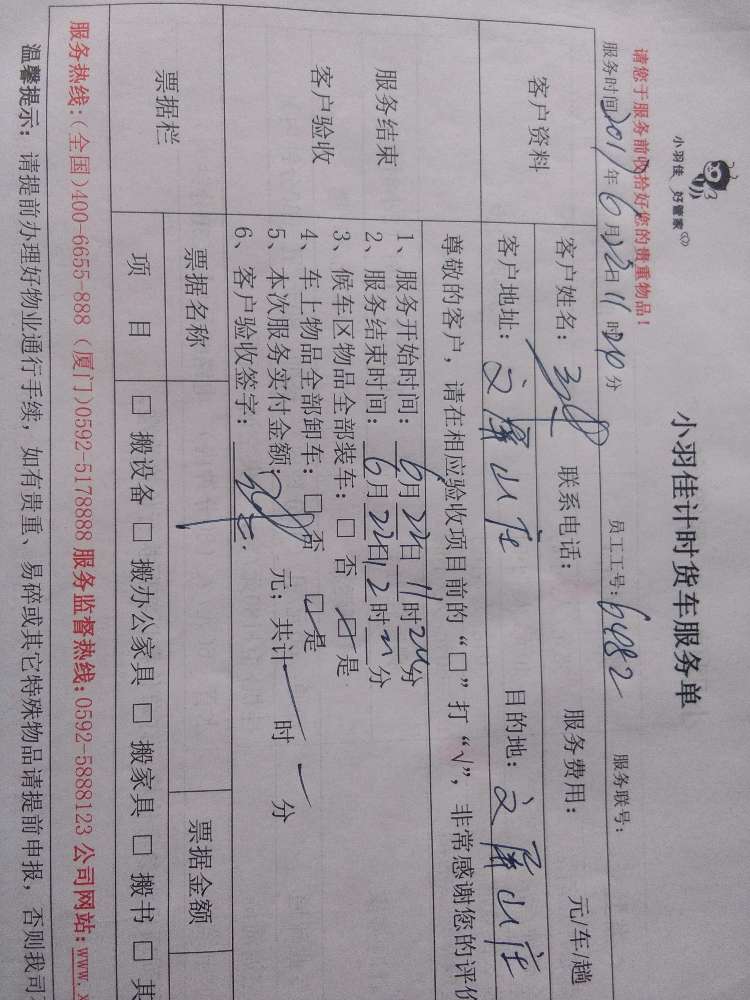 小羽佳 好管家
小羽佳计时货车服务单
请您于服务前收拾好您的贵重物品！
服务时间2017年6月22日11时20分 员工工号：6482 服务联号：
客户资料
客户姓名： 联系电话： 服务费用： 元/车/趟
客户地址：文屏山庄 目的地：文屏山庄
尊敬的客户，请在相应验收项目前的“□”打“√”，非常感谢您的评价
服务结束
客户验收
1、服务开始时间：6月22日11时20分
2、服务结束时间：6月22日12时 分
3、候车区物品全部装车：□ 否 □ 是
4、车上物品全部卸车：□ 否 □ 是
5、本次服务实付金额： 元；共计 时 分
6、客户验收签字：
票据栏
票据名称 票据金额
项 目 □ 搬设备 □ 搬办公家具 □ 搬家具 □ 搬书 □ 其
服务热线：（全国）400-6655-888（厦门）0592-5178888 服务监督热线：0592-5888123 公司网站：www.x
温馨提示：请提前办理好物业通行手续，如有贵重、易碎或其它特殊物品请提前申报，否则我司